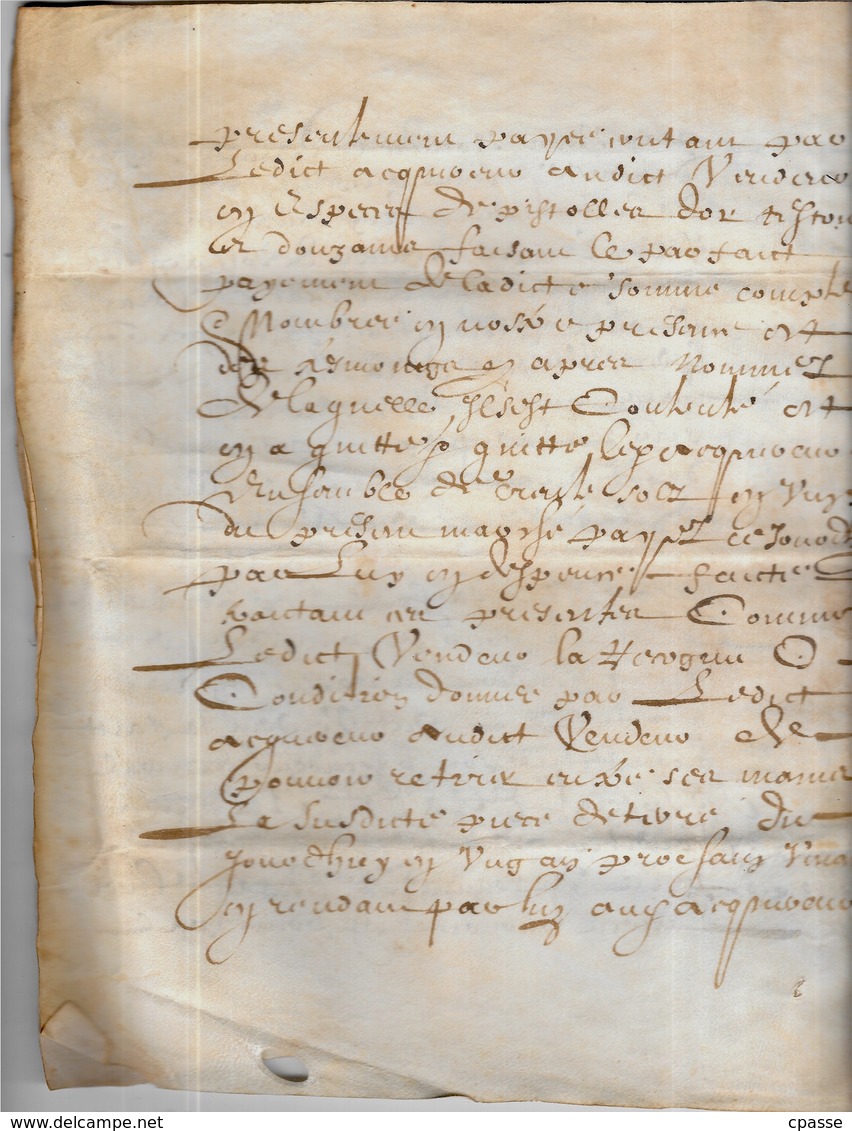 presentement payee contant par
Ledict acquereur audict Vendeur
en Espece de pistolles dor testou
et douzains faisant le parfaict
payement de ladicte somme compte
Nombree en nostre presence et
des tesmoings cy apres Nommez
de laquelle s'est Contenté et
en a quitte & quitte led acquereur
Ensemble de solz en Vin
du present marché payez ce jourd
par Luy en despence faicte
traictant ces presentes Comme
Ledict Vendeur la Recognu
Condition donnee par Ledict
acquereur audict Vendeur de
pouvoir retirer entre ses mains
La susdicte piece de terre du
Jourdhuy en Ung an prochain Vena
en rendant par luy aud acquereur
cpasse